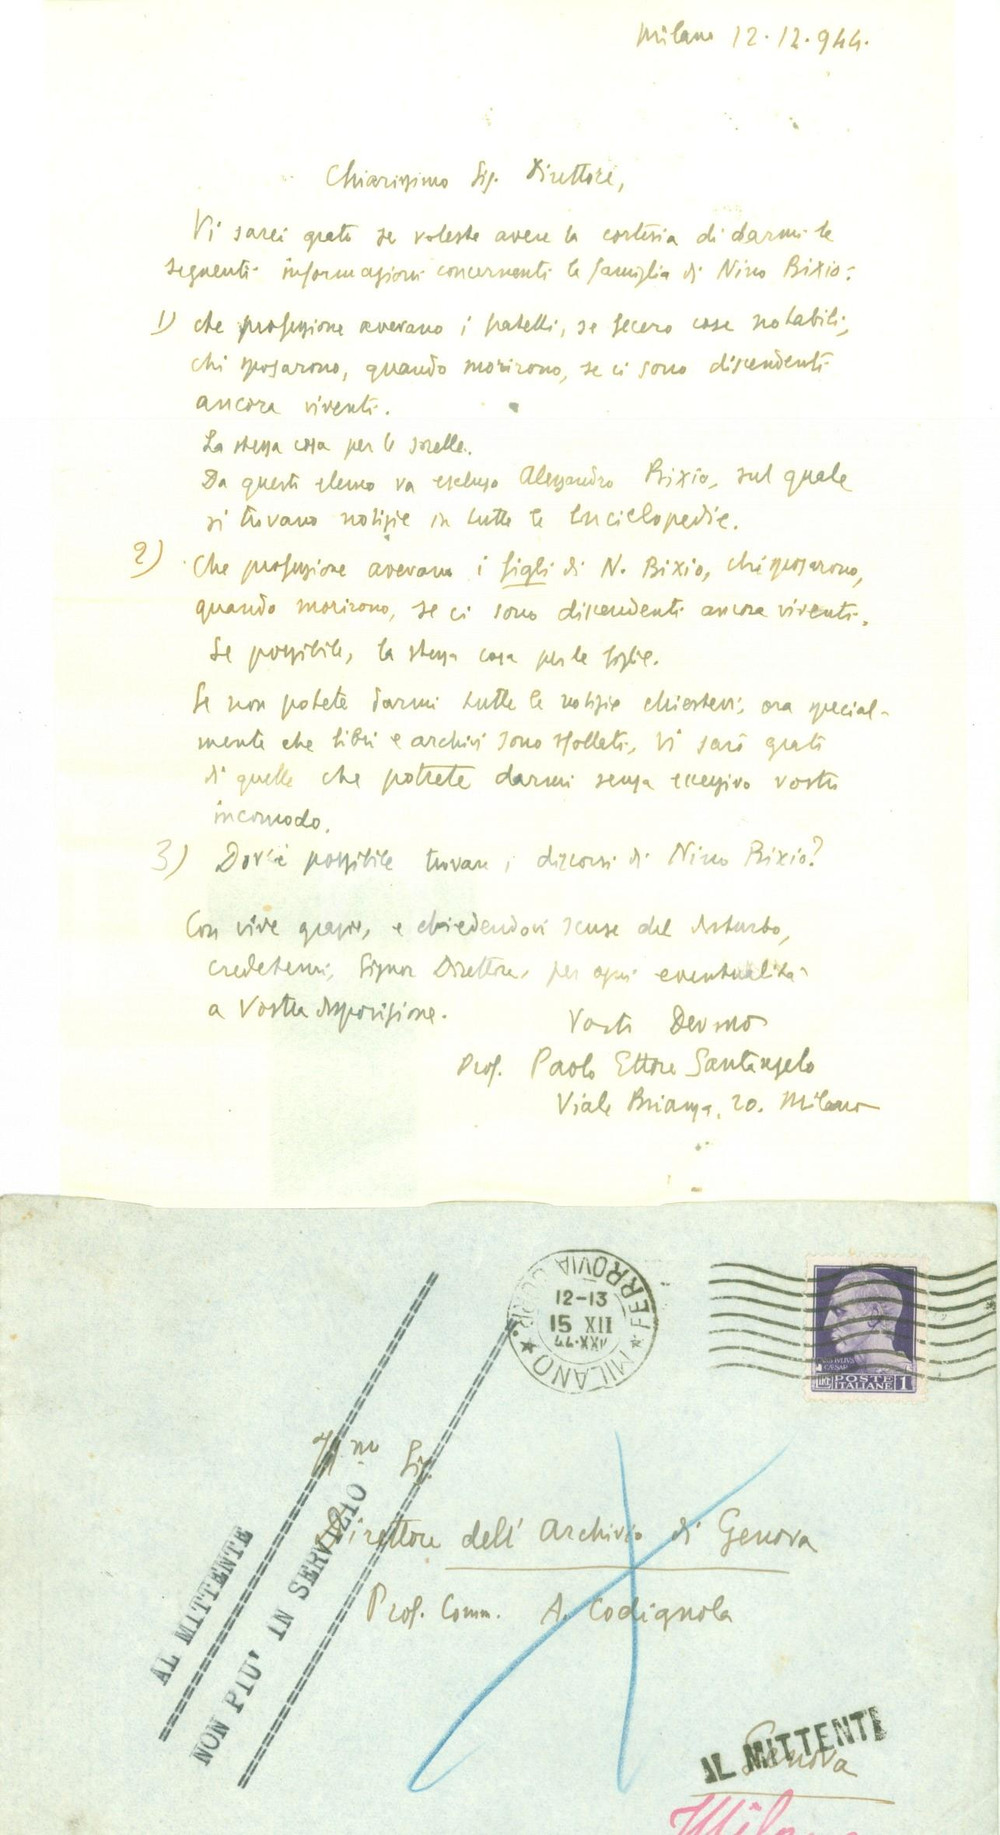 Milano 12.12.944.
Chiarissimo Sig. Direttore,
Vi sarei grato se voleste avere la cortesia di darmi le
seguenti informazioni concernenti la famiglia di Nino Bixio:
1) che professione avevano i fratelli, se fecero cose notabili,
chi sposarono, quando morirono, se ci sono discendenti
ancora viventi.
La stessa cosa per le sorelle.
Da questo elenco va escluso Alessandro Bixio, sul quale
si trovano notizie in tutte le Enciclopedie.
2) Che professione avevano i figli di N. Bixio, chi sposarono,
quando morirono, se ci sono discendenti ancora viventi.
Se possibile, la stessa cosa per le figlie.
Se non potete darmi tutte le notizie chiestevi, ora special-
mente che libri e archivi sono sfollati, Vi sarò grato
di quelle che potrete darmi senza eccessivo vostro
incomodo.
3) Dov'è possibile trovare i discorsi di Nino Bixio?
Con vive grazie, e chiedendovi scuse del disturbo,
credetemi, Signor Direttore, per ogni eventualità
a Vostra disposizione.
Vostro Devmo
Prof. Paolo Ettore Santangelo
Viale Brianza, 20. Milano
MILANO FERROVIA CORR.
12-13
15 XII
44·XXIV
POSTE ITALIANE 1
Sig.
Direttore dell' Archivio di Genova
Prof. Comm. A. Codignola
AL MITTENTE
NON PIU' IN SERVIZIO
Genova
AL MITTENTE
Milano